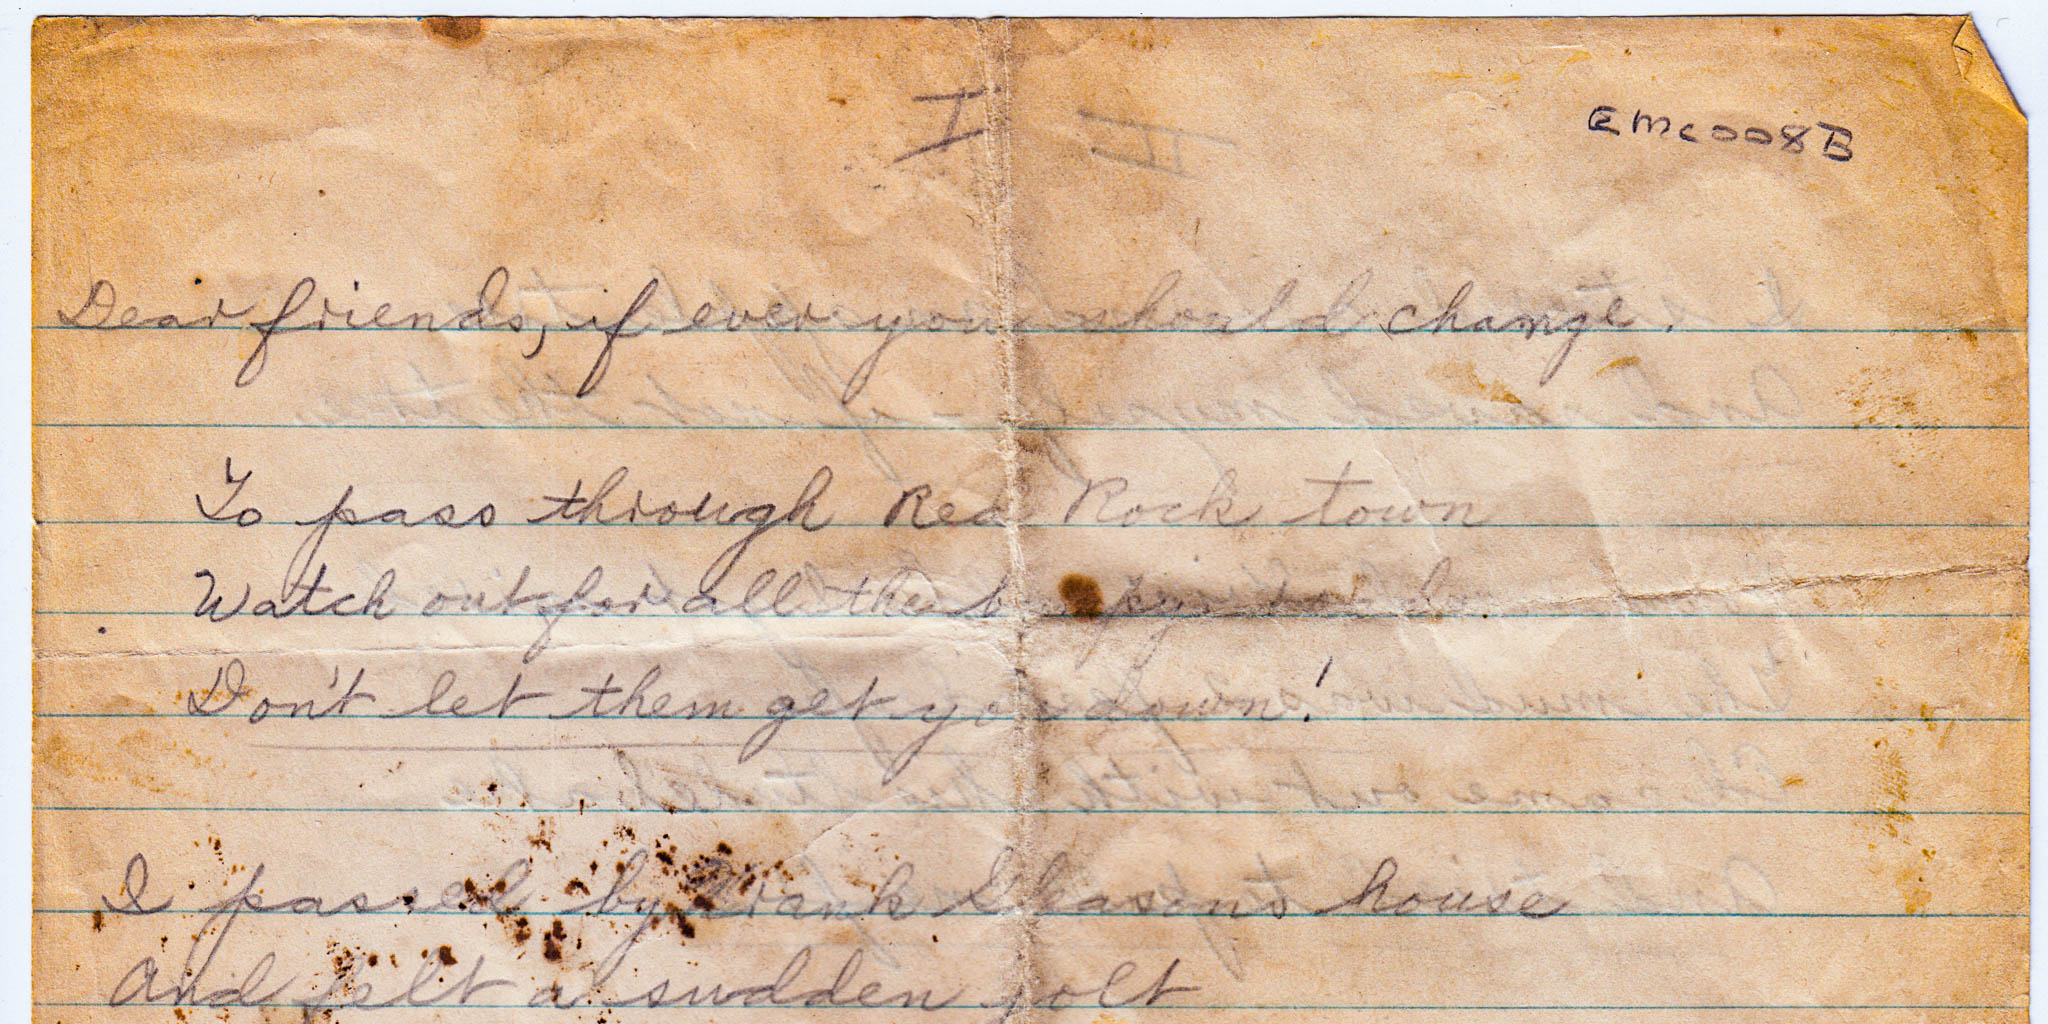 I
EMC008B
Dear friends, if ever you should change.
To pass through Red Rock town
Watch out for all the bumpy
Don't let them get you down!
I passed by Frank Gleasons house
And felt a sudden jolt